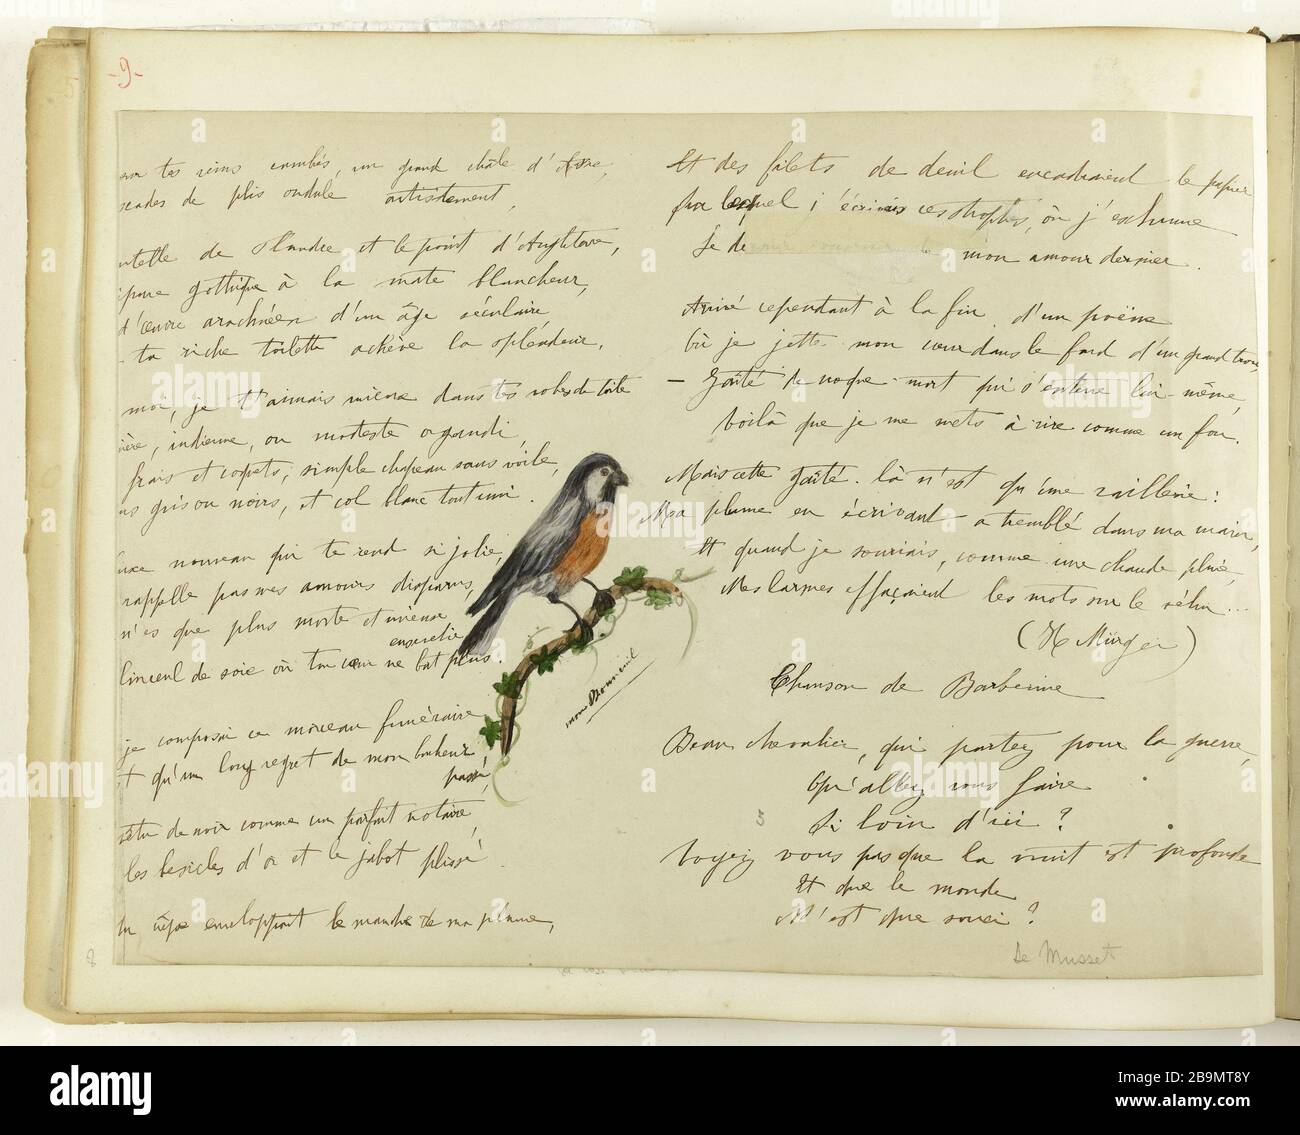 -9-
sur tes reins cambrés, un grand châle d'Asie,
scades de plis ondule artistement,
ntelle de Flandre et le point d'Angleterre,
ipure gothique à la mate blancheur,
d'œuvre arachnéen d'un âge séculaire
ta riche toilette achève la splendeur.
moi, je t'aimais mieux dans tes robes de toile
nière, indienne, ou modeste organdi,
frais et coquets, simple chapeau sans voile,
ns gris ou noirs, et col blanc tout uni.
luxe nouveau qui te rend si jolie,
rappelle pas mes amours disparus,
n'es que plus morte et mieux
ensevelie
linceul de soie où ton cœur ne bat plus.
je composai ce morceau funéraire
t qu'un long regret de mon bonheur
passé,
vêtu de noir comme un parfait notaire
les besicles d'or et le jabot plissé.
Un crêpe enveloppait le manche de ma plume,
Et des filets de deuil encadraient le papier
sur lequel j'écrivais ces strophes, où j'exhume
Le de mon amour dernier.
Arrivé cependant à la fin d'un poëme
Où je jette mon cœur dans le fond d'un grand trou,
- Gaîté de croque-mort qui s'enterre lui-même,
Voilà que je me mets à rire comme un fou.
Mais cette gaîté là n'est qu'une raillerie :
Ma plume en écrivant a tremblé dans ma main,
Et quand je souriais, comme une chaude pluie,
Mes larmes effaçaient les mots sur le vélin...
(H Mürger)
Chanson de Barberine
Beau chevalier, qui partez pour la guerre,
Qu'allez vous faire
Si loin d'ici ?
Voyez vous pas que la nuit est profonde
Et que le monde
N'est que souci ?
De Musset
5
8
alamy
Image ID: 2B9MT8Y
www.alamy.com